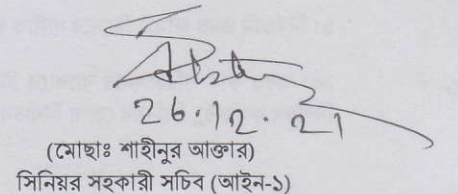 26.12.21
(মোছাঃ শাহীনুর আক্তার)
সিনিয়র সহকারী সচিব (আইন-১)